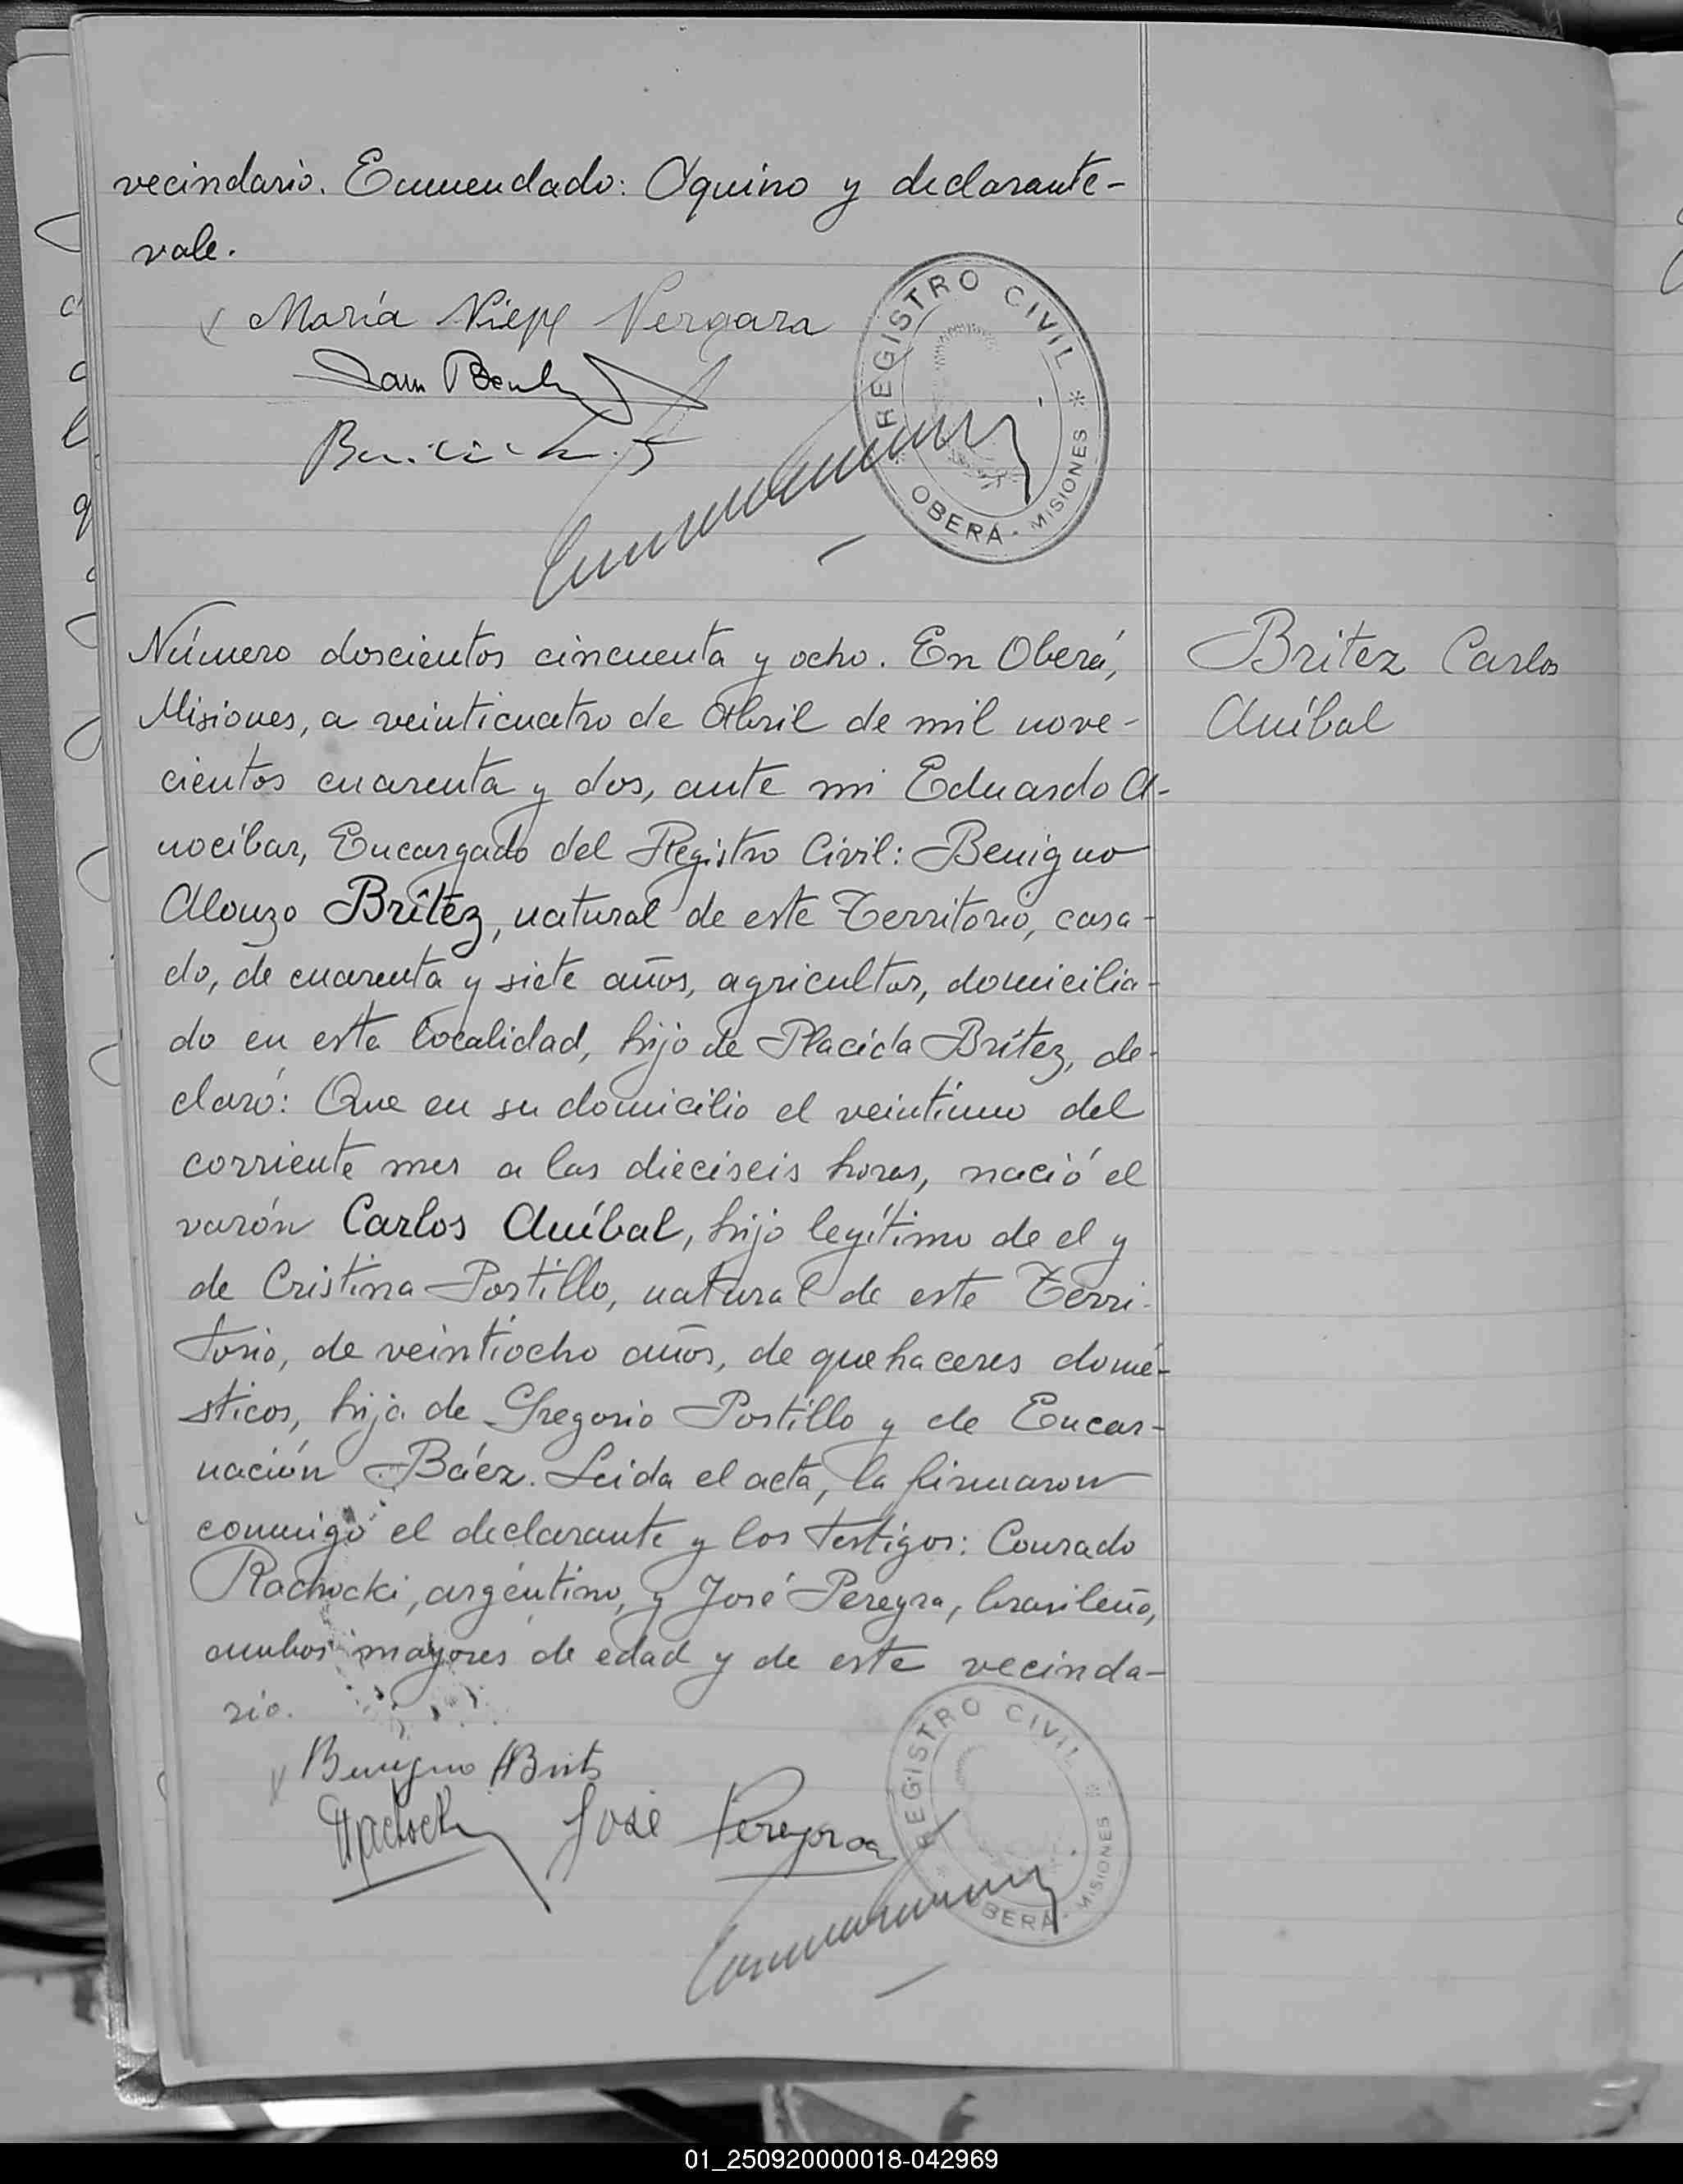 vecindario. Enmendado: Aquino y declarante-
vale.
María Niepf Vergara
REGISTRO CIVIL
OBERÁ - MISIONES
Número doscientos cincuenta y ocho. En Oberá,
Britez Carlos
Misiones, a veinticuatro de Abril de mil nove-
Aníbal
cientos cuarenta y dos, ante mi Eduardo A-
nocíbar, Encargado del Registro Civil: Benigno
Alonzo Britez, natural de este Territorio, casa-
do, de cuarenta y siete años, agricultor, domicilia-
do en esta localidad, hijo de Placida Britez, de-
claró: Que en su domicilio el veintiuno del
corriente mes a las dieciseis horas, nació el
varón Carlos Aníbal, hijo legítimo de el y
de Cristina Portillo, natural de este Terri-
torio, de veintiocho años, de quehaceres domé-
sticos, hija de Gregorio Portillo y de Encar-
nación Báez. Leida el acta, la firmaron
conmigo el declarante y los testigos: Conrado
Rachocki, argentino, y José Pereyra, brasileño,
ambos mayores de edad y de este vecinda-
rio.
Benigno A Brits
José Pereyra
REGISTRO CIVIL
OBERÁ - MISIONES
01_250920000018-042969